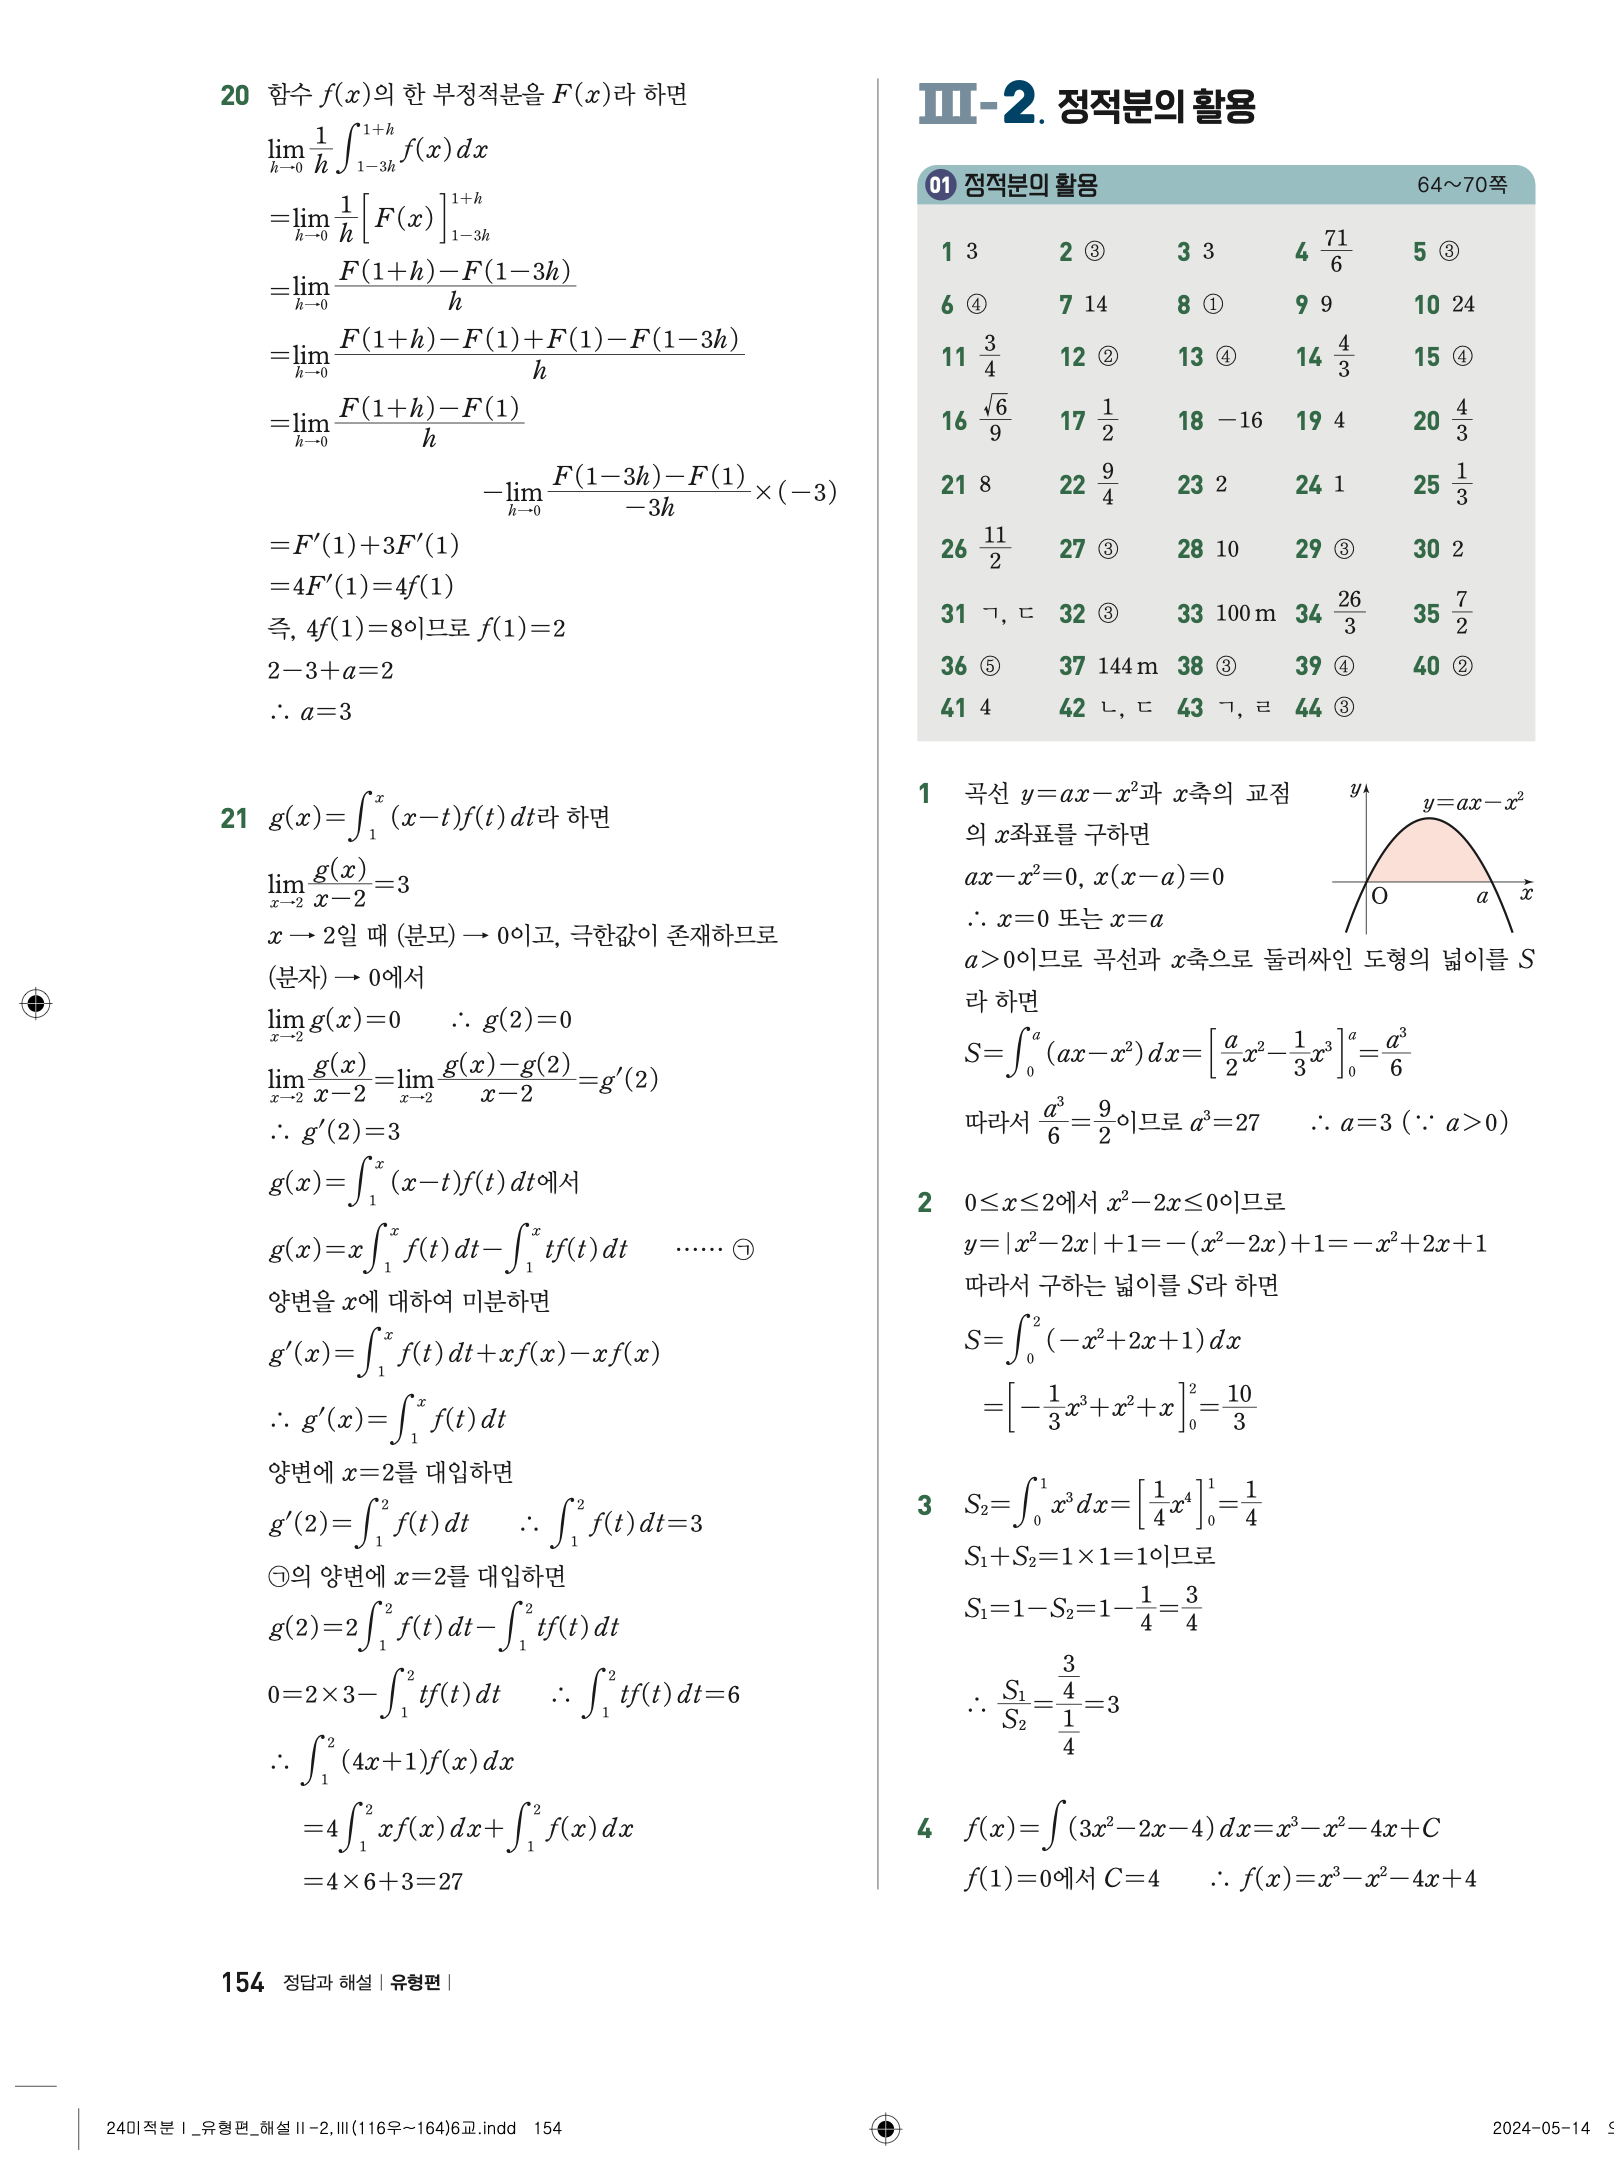 20 함수 f(x)의 한 부정적분을 F(x)라 하면
lim_{h→0} 1/h ∫_{1-3h}^{1+h} f(x)dx
=lim_{h→0} 1/h [F(x)]_{1-3h}^{1+h}
=lim_{h→0} {F(1+h)-F(1-3h)}/h
=lim_{h→0} {F(1+h)-F(1)+F(1)-F(1-3h)}/h
=lim_{h→0} {F(1+h)-F(1)}/h
-lim_{h→0} {F(1-3h)-F(1)}/{-3h}×(-3)
=F′(1)+3F′(1)
=4F′(1)=4f(1)
즉, 4f(1)=8이므로 f(1)=2
2-3+a=2
∴ a=3
21 g(x)=∫_1^x (x-t)f(t)dt라 하면
lim_{x→2} g(x)/{x-2}=3
x → 2일 때 (분모) → 0이고, 극한값이 존재하므로
(분자) → 0에서
lim_{x→2} g(x)=0 ∴ g(2)=0
lim_{x→2} g(x)/{x-2}=lim_{x→2} {g(x)-g(2)}/{x-2}=g′(2)
∴ g′(2)=3
g(x)=∫_1^x (x-t)f(t)dt에서
g(x)=x∫_1^x f(t)dt-∫_1^x tf(t)dt …… ㉠
양변을 x에 대하여 미분하면
g′(x)=∫_1^x f(t)dt+xf(x)-xf(x)
∴ g′(x)=∫_1^x f(t)dt
양변에 x=2를 대입하면
g′(2)=∫_1^2 f(t)dt ∴ ∫_1^2 f(t)dt=3
㉠의 양변에 x=2를 대입하면
g(2)=2∫_1^2 f(t)dt-∫_1^2 tf(t)dt
0=2×3-∫_1^2 tf(t)dt ∴ ∫_1^2 tf(t)dt=6
∴ ∫_1^2 (4x+1)f(x)dx
=4∫_1^2 xf(x)dx+∫_1^2 f(x)dx
=4×6+3=27
Ⅲ-2. 정적분의 활용
01 정적분의 활용 64~70쪽
1 3 2 ③ 3 3 4 71/6 5 ③
6 ④ 7 14 8 ① 9 9 10 24
11 3/4 12 ② 13 ④ 14 4/3 15 ④
16 √6/9 17 1/2 18 -16 19 4 20 4/3
21 8 22 9/4 23 2 24 1 25 1/3
26 11/2 27 ③ 28 10 29 ③ 30 2
31 ㄱ, ㄷ 32 ③ 33 100 m 34 26/3 35 7/2
36 ⑤ 37 144 m 38 ③ 39 ④ 40 ②
41 4 42 ㄴ, ㄷ 43 ㄱ, ㄹ 44 ③
1 곡선 y=ax-x²과 x축의 교점
의 x좌표를 구하면
ax-x²=0, x(x-a)=0
∴ x=0 또는 x=a
y
y=ax-x²
O a x
a>0이므로 곡선과 x축으로 둘러싸인 도형의 넓이를 S
라 하면
S=∫_0^a (ax-x²)dx=[a/2 x²-1/3 x³]_0^a=a³/6
따라서 a³/6=9/2이므로 a³=27 ∴ a=3 (∵ a>0)
2 0≤x≤2에서 x²-2x≤0이므로
y=|x²-2x|+1=-(x²-2x)+1=-x²+2x+1
따라서 구하는 넓이를 S라 하면
S=∫_0^2 (-x²+2x+1)dx
=[-1/3 x³+x²+x]_0^2=10/3
3 S₂=∫_0^1 x³dx=[1/4 x⁴]_0^1=1/4
S₁+S₂=1×1=1이므로
S₁=1-S₂=1-1/4=3/4
∴ S₁/S₂=(3/4)/(1/4)=3
4 f(x)=∫(3x²-2x-4)dx=x³-x²-4x+C
f(1)=0에서 C=4 ∴ f(x)=x³-x²-4x+4
154 정답과 해설 | 유형편 |
24미적분Ⅰ_유형편_해설Ⅱ-2,Ⅲ(116우~164)6교.indd 154
2024-05-14